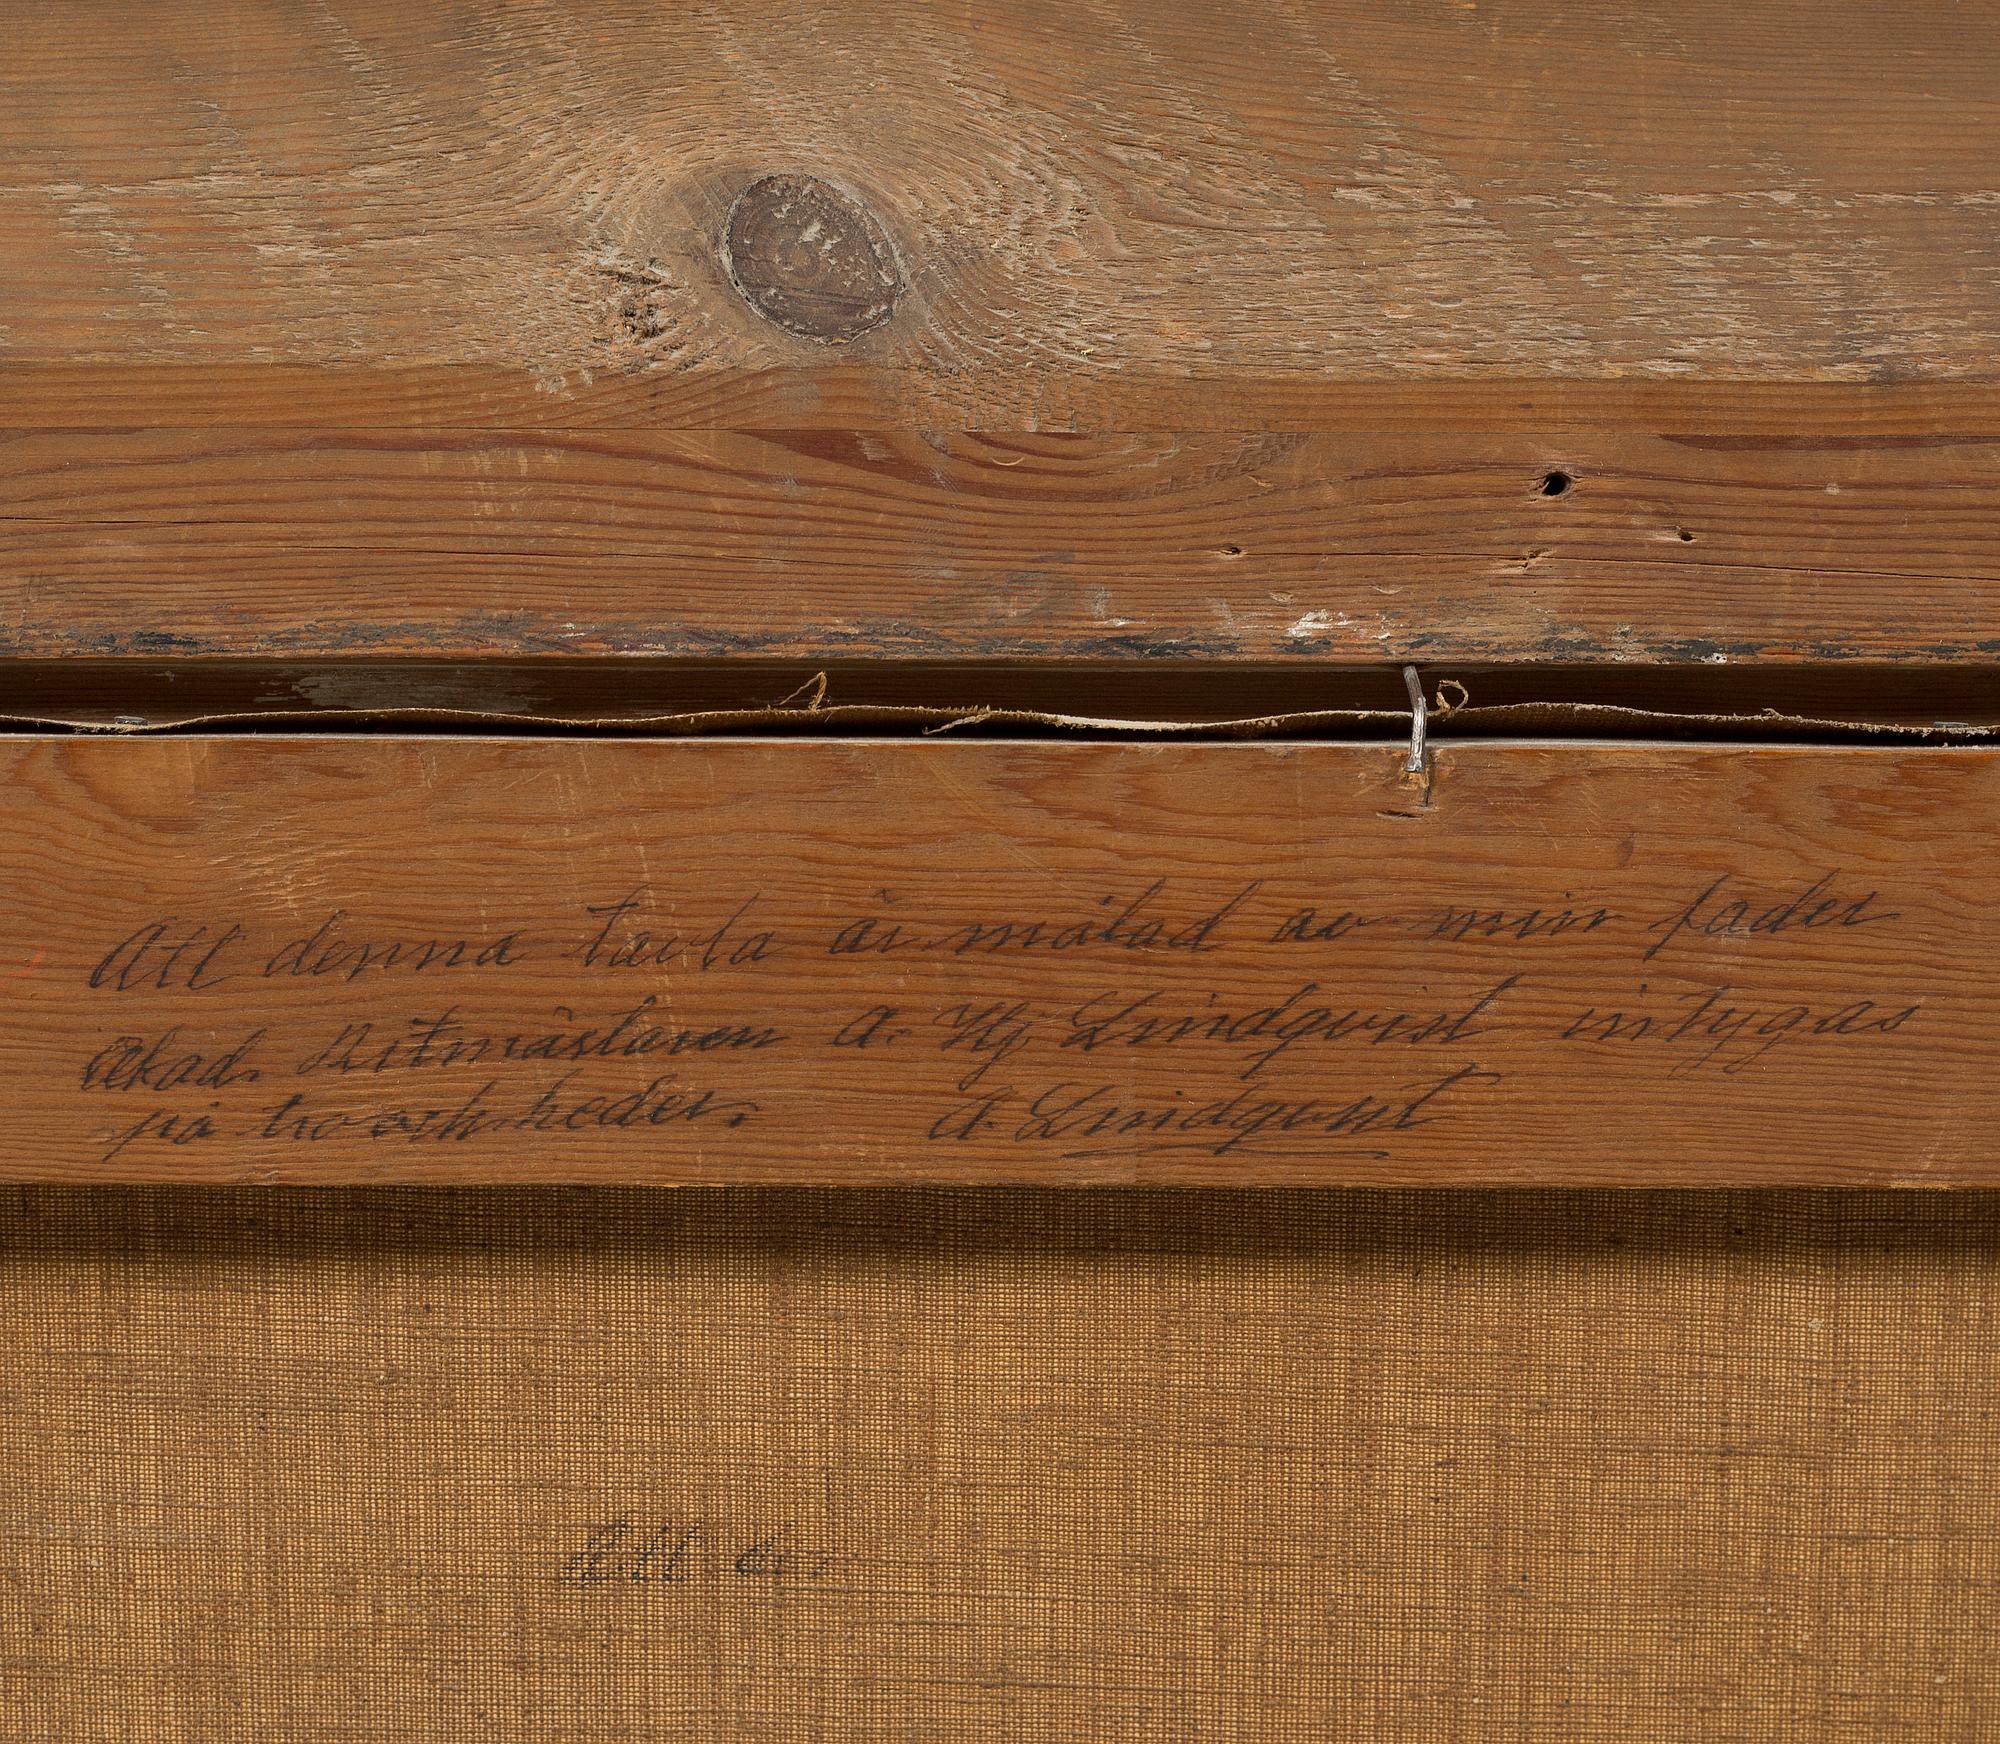 Att denna tavla är målad av min fader
Akad. Ritmästaren A. Hj. Lindqvist intygas
på tro och heder. A. Lindqvist
Att de